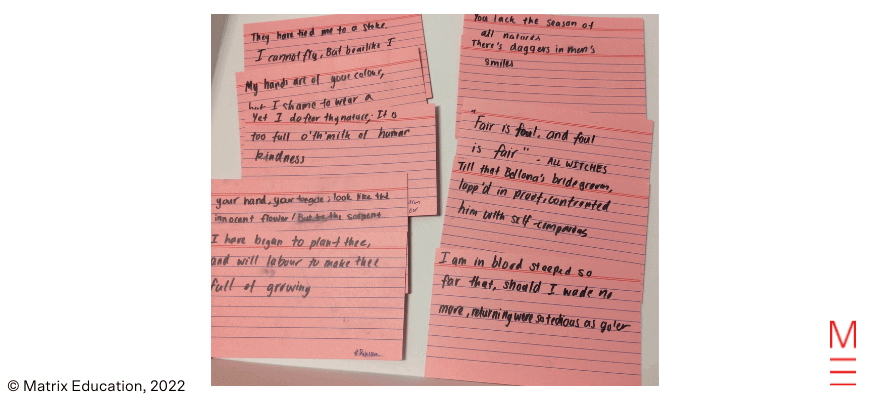 They have tied me to a stake.
I cannot fly, But bearlike I
My hands are of your colour,
but I shame to wear a
Yet I do fear thy nature; It is
too full o'th'milk of human
kindness
your hand, your tongue; look like the
innocent flower / But be the serpent
I have began to plant thee,
and will labour to make thee
full of growing
You lack the season of
all natures
There's daggers in men's
smiles
"Fair is foul, and foul
is fair" - ALL WITCHES
Till that Bellona's bridegroom,
lapp'd in proof, confronted
him with self-comparisons
I am in blood steeped so
far that, should I wade no
more, returning were so tedious as go'er
© Matrix Education, 2022
M